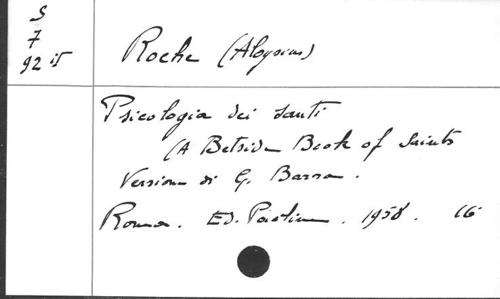 S
7
92 it
Roche (Aloysius)
Psicologia dei santi
(A Betside Book of Saints
Versione di G. Barra.
Roma. Ed. Paoline. 1958. 16°